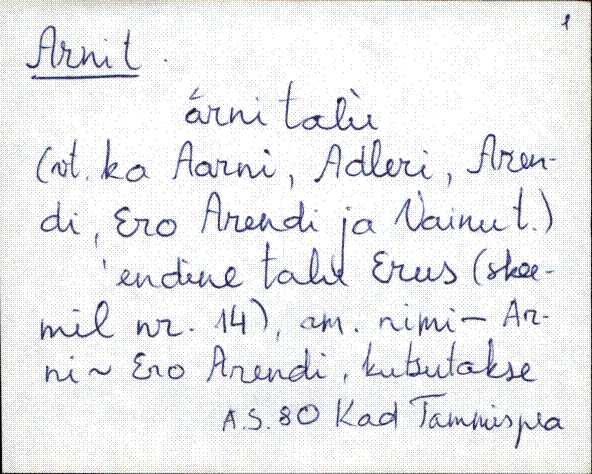 1
Arni t.
árni talù
(vt. ka Aarni, Adleri, Aren-
di, Ero Arendi ja Vainu t.)
'endine talu Erus (skee-
mil nr. 14), am. nimi – Ar-
ni ~ Ero Arendi, kutsutakse
A.S. 80 Kad Tammispea